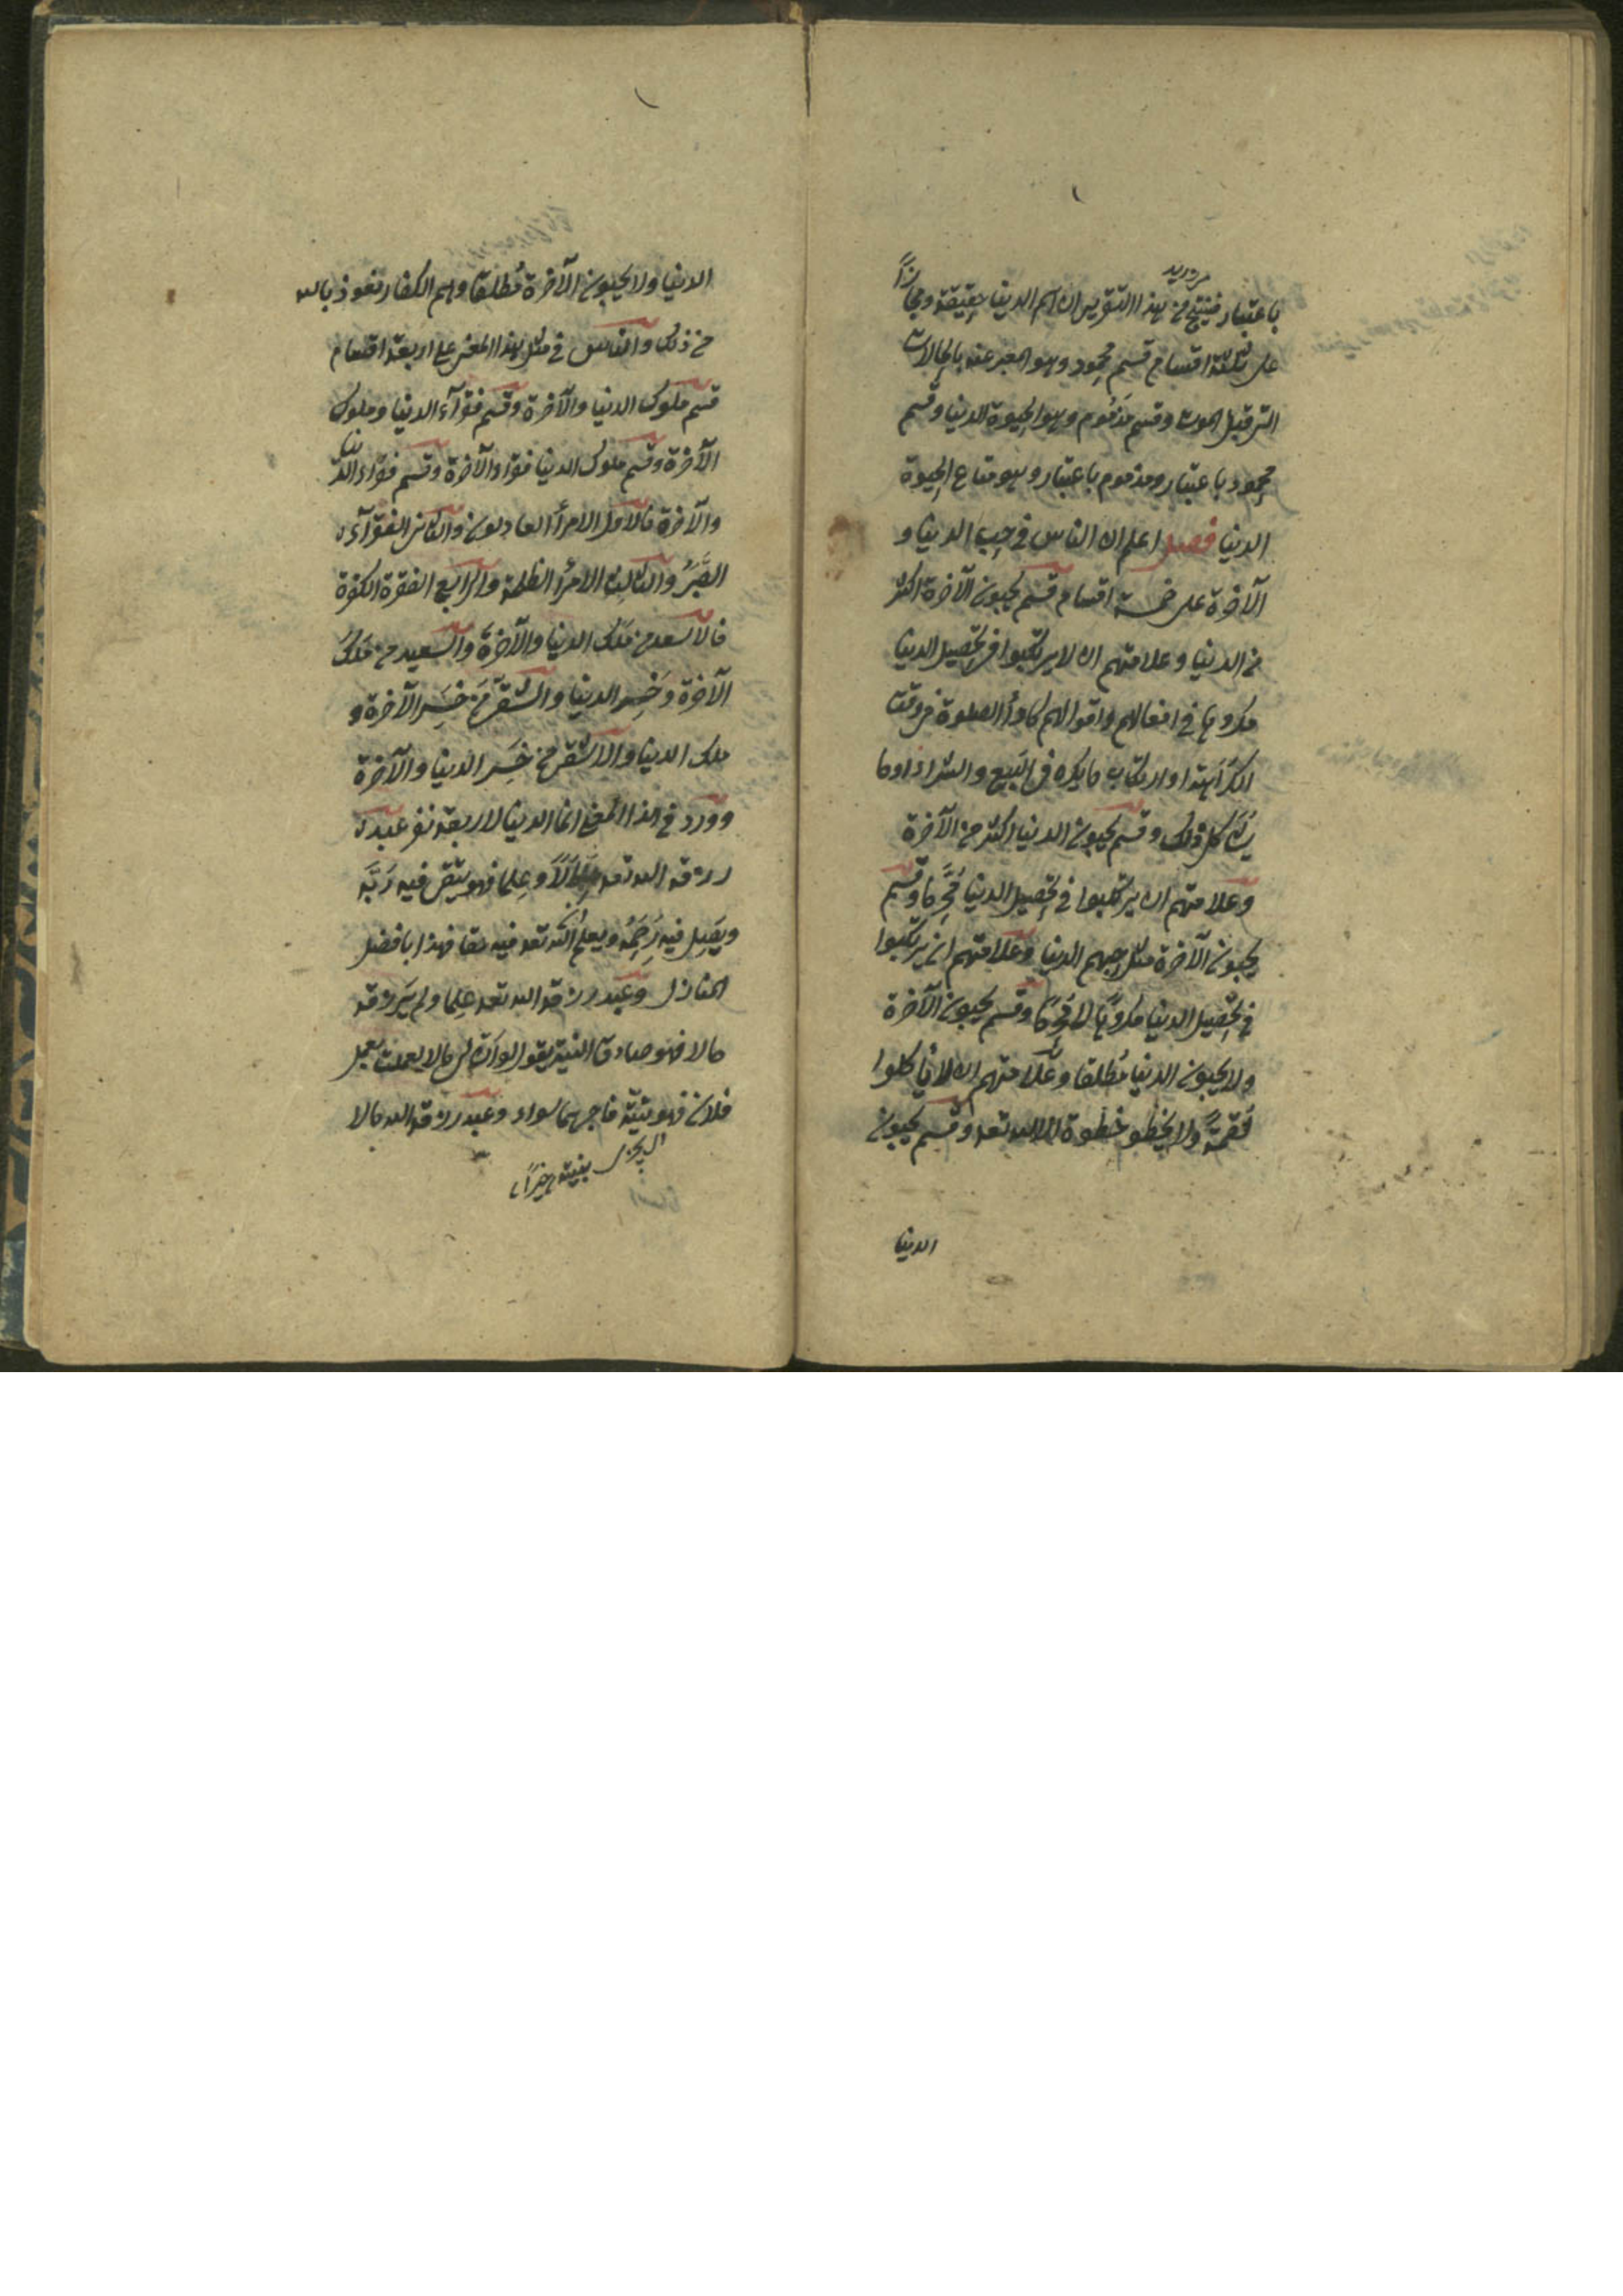 باعتبار فينتج من هذا التقرير ان اسم الدنيا حقيقة ومجازاً
على ثلثة اقسام قسم محمود وهو المعبر عنه بالحالات
التي قبل الموت وقسم مذموم وهو الحيوة الدنيا وقسم
محمود باعتبار ومذموم باعتبار وهو متاع الحيوة
الدنيا فصل اعلم ان الناس في حب الدنيا و
الآخرة على خمسة اقسام قسم يحبون الآخرة اكثر
من الدنيا وعلامتهم ان لا يرتكبوا في تحصيل الدنيا
مكروها في افعالهم واقوالهم كاداء الصلوة في وقت
الكراهة او ارتكاب ما يكره في البيع والشراء او ما
كل ذلك وقسم يحبون الدنيا اكثر من الآخرة
وعلامتهم ان يرتكبوا في تحصيل الدنيا مُحَرَّما وقسم
يحبون الآخرة مثل حبهم الدنيا وعلامتهم ان يرتكبوا
في تحصيل الدنيا مكروهًا لا محرمًا وقسم يحبون الآخرة
ولا يحبون الدنيا مُطلقا وعلامتهم ان لا يأكلوا
لقمةً ولا يخطو خطوة الا لله تعه وقسم يحبون
الدنيا
الدنيا ولا يحبون الآخرة مُطلقا وهم الكفار نعوذ بالله
من ذلك والناس في مثل هذا المعنى على اربعة اقسام
قسم ملوك الدنيا والآخرة وقسم فقرآء الدنيا وملوك
الآخرة وقسم ملوك الدنيا فقراء الآخرة وقسم فقراء الدنيا
والآخرة فالاول الامرأ العادلون والثاني الفقرآء
الصُّبَّرُ والثالث الامرأ الظلمة والرابع الفقرة الكفرة
فالاسعد من مَلَك الدنيا والآخرة والسعيد من مَلَكَ
الآخرة وخَسِر الدنيا والشقي مَن خَسِر الآخرة و
ملك الدنيا والاشقى من خَسِر الدنيا والآخرة
وورد في هذا المعنى انما الدنيا لاربعة نفر عبد
رزقه الله تعه مالاً وعِلما فهو يتقي فيه رَبَّه
ويَصِل فيه رَحِمَهُ ويعلم لله تعه فيه حقا فهذا بافضل
المنازل وعبد رزقه الله تعه علما ولم يَرزقه
مالا فهو صادق النية يقول لو ان لي مالا لعملت بعمل
فلان فهو بنيّته فاجرهما سواء وعبد رزقه الله مالا